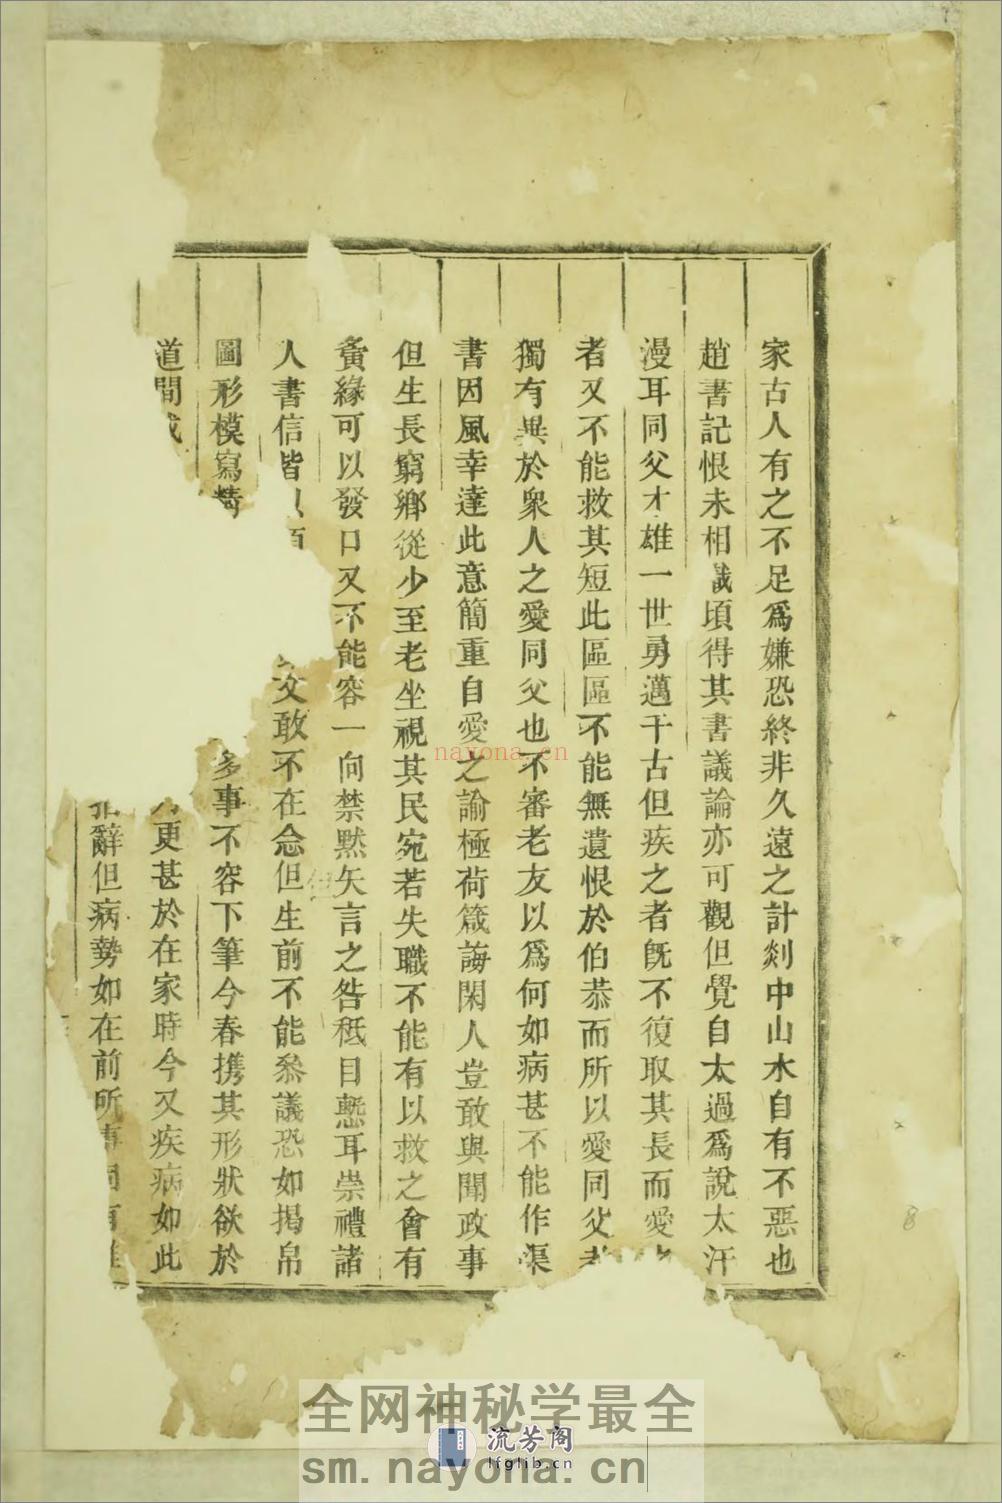 家古人有之不足爲嫌恐終非久遠之計剡中山水自有不惡也
趙書記恨未相識頃得其書議論亦可觀但覺自太過爲說太汗
漫耳同父才雄一世勇邁千古但疾之者既不復取其長而愛
者又不能救其短此區區不能無遺恨於伯恭而所以愛同父者
獨有異於衆人之愛同父也不審老友以爲何如病甚不能作渠
書因風幸達此意簡重自愛之諭極荷箴誨閑人豈敢與聞政事
但生長窮鄉從少至老坐視其民宛若失職不能有以救之會有
夤緣可以發口又不能容一向禁默矢言之咎秪自慙耳崇禮諸
人書信皆以
文敢不在念但生前不能叅議恐如揭帛
圖形模寫
多事不容下筆今春携其形狀欲於
道間或
更甚於在家時今又疾病如此
辭但病勢如在前所
全网神秘学最全
sm.nayona.cn
nayona.cn
流芳阁
lfglib.cn